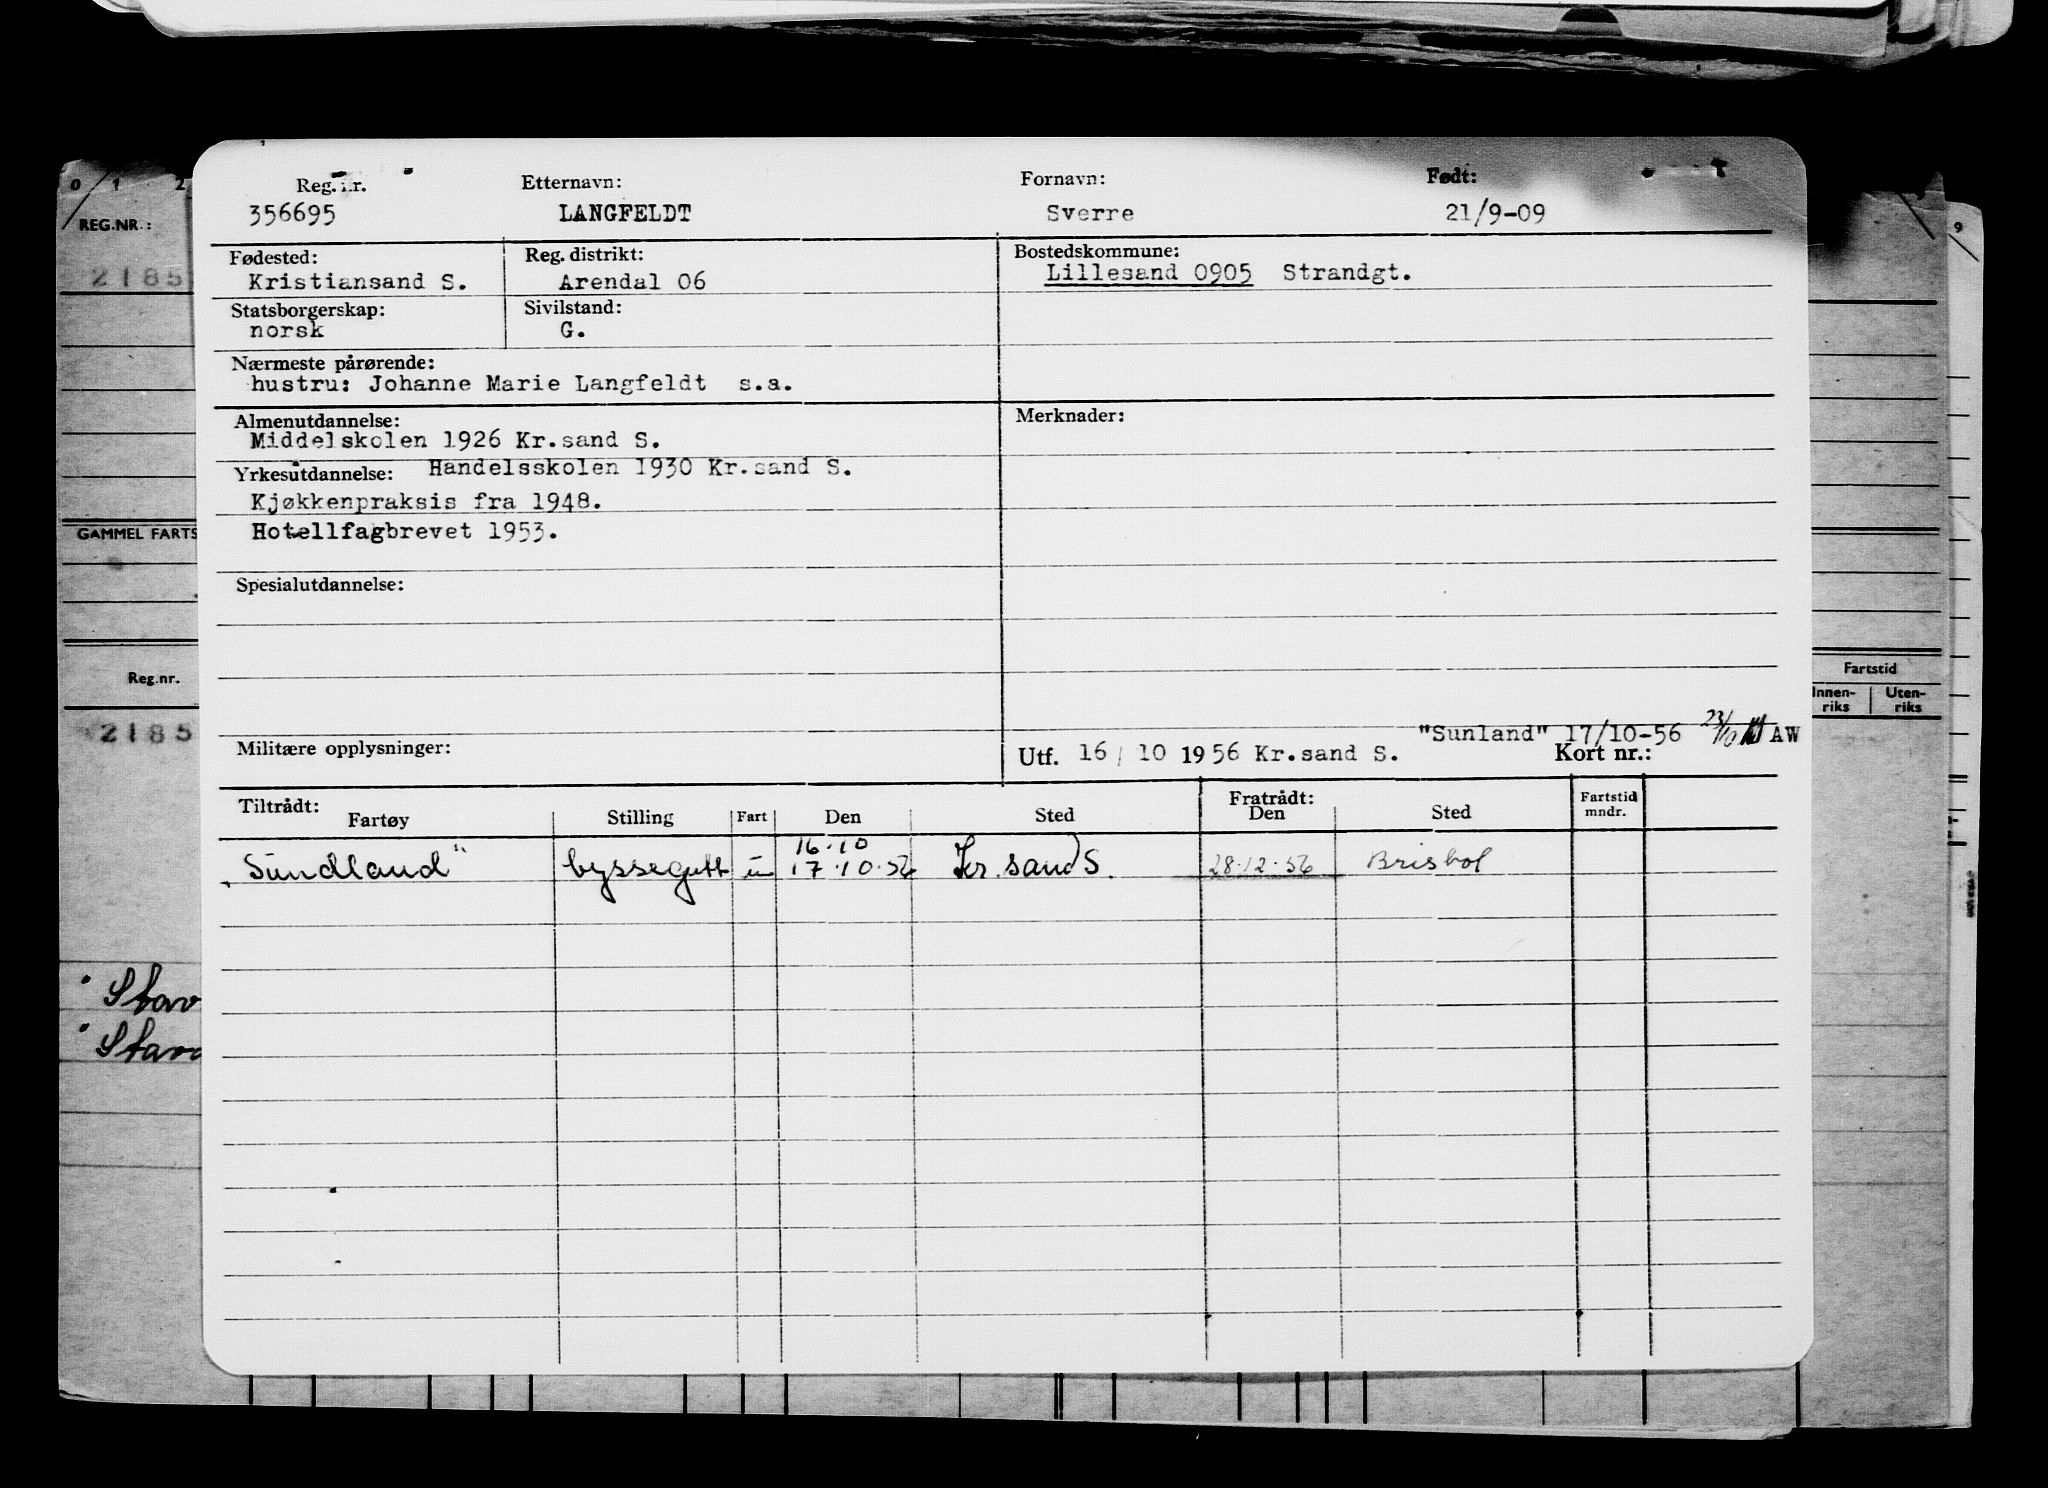 Reg. nr. Etternavn: Fornavn: Født:
356695 LANGFELDT Sverre 21/9-09
Fødested: Reg. distrikt: Bostedskommune:
Kristiansand S. Arendal 06 Lillesand 0905 Strandgt.
Statsborgerskap: Sivilstand:
norsk G.
Nærmeste pårørende:
hustru: Johanne Marie Langfeldt s.a.
Almenutdannelse: Merknader:
Middelskolen 1926 Kr.sand S.
Yrkesutdannelse: Handelsskolen 1930 Kr.sand S.
Kjøkkenpraksis fra 1948.
Hotellfagbrevet 1953.
Spesialutdannelse:
"Sunland" 17/10-56 23/10 AW
Militære opplysninger: Utf. 16/10 1956 Kr.sand S. Kort nr.:
Tiltrådt: Fratrådt: Fartstid
Fartøy Stilling Fart Den Sted Den Sted mndr.
16.10
"Sundland" byssegutt u 17.10.56 Kr.sand S. 28.12.56 Bristol
0 1 2
REG.NR.:
2185
GAMMEL FARTS
Reg.nr.
2185
"Stav
"Stava
9
Fartstid
Innen-riks Uten-riks